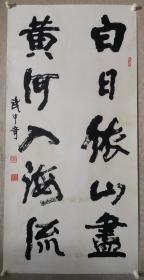 白日依山盡
黄河入海流
武中奇